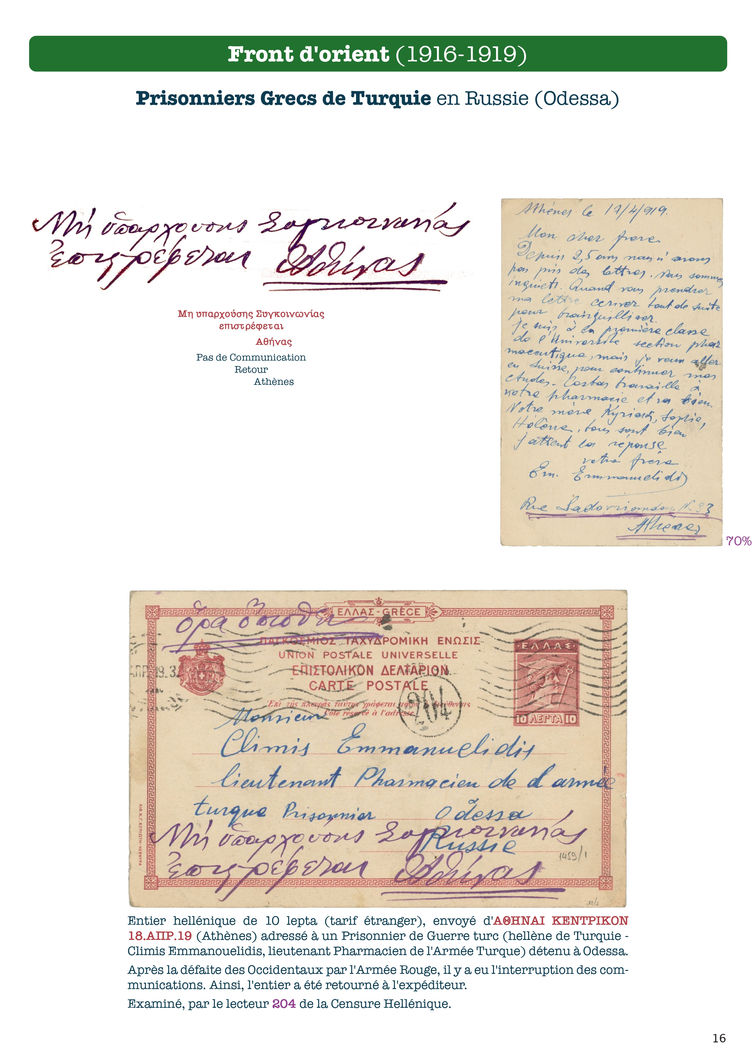 Front d'orient (1916-1919)
Prisonniers Grecs de Turquie en Russie (Odessa)
Μὴ ὑπαρχούσης Συγκοινωνίας
ἐπιστρέφεται Ἀθήνας
Μη υπαρχούσης Συγκοινωνίας
επιστρέφεται
Αθήνας
Pas de Communication
Retour
Athènes
Athènes le 17/4/919
Mon cher frere
Depuis 2,5 ans nous n'avons
pas pris des lettres. Nous sommes
inquiets. Quand vous prendrez
ma lettre ecriver tout de suite
pour
Je suis à la première classe
de l'Université section phar
maceutique, mais je veux aller
en Suisse, pour continuer mes
etudes. Costas travaille à
notre pharmacie et va bien
Notre mère Kyriaki, Sophie,
Hélène, tous sont bien
J'attent la reponse
votre frère
Em. Emmanuelidis
Rue
Athènes
70%
ὅρα ὄπισθεν
ΕΛΛΑΣ-GRÈCE
ΠΑΓΚΟΣΜΙΟΣ ΤΑΧΥΔΡΟΜΙΚΗ ΕΝΩΣΙΣ
UNION POSTALE UNIVERSELLE
ΕΠΙΣΤΟΛΙΚΟΝ ΔΕΛΤΑΡΙΟΝ
CARTE POSTALE
Côté réservé à l'adresse
ΕΛΛΑΣ
10 ΛΕΠΤΑ 10
204
Monsieur
Climis Emmanuelidis
lieutenant Pharmacien de d armée
turque Prisonnier Odessa
Russie
Μὴ ὑπαρχούσης Συγκοινωνίας
ἐπιστρέφεται Ἀθήνας
1459/1
Entier hellénique de 10 lepta (tarif étranger), envoyé d'ΑΘΗΝΑΙ ΚΕΝΤΡΙΚΟΝ
18.ΑΠΡ.19 (Athènes) adressé à un Prisonnier de Guerre turc (hellène de Turquie -
Climis Emmanouelidis, lieutenant Pharmacien de l'Armée Turque) détenu à Odessa.
Après la défaite des Occidentaux par l'Armée Rouge, il y a eu l'interruption des com-
munications. Ainsi, l'entier a été retourné à l'expéditeur.
Examiné, par le lecteur 204 de la Censure Hellénique.
16